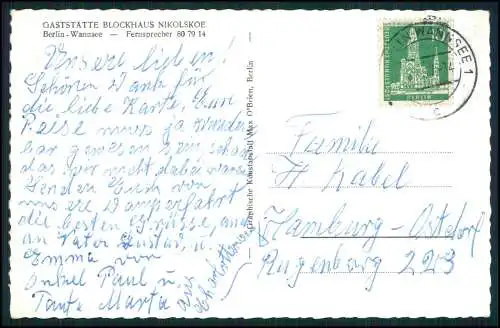 GASTSTÄTTE BLOCKHAUS NIKOLSKOE
Berlin-Wannsee — Fernsprecher 80 79 14
Unsere lieben!
Schönen Dank für
die liebe Karte, Eure
Reise muss ja wunder
bar gewesen sein schade
das wir nicht dabei waren
Senden Euch von
unsere Dampferfahrt
die besten Grüsse, auch
an Vater Gustav, u.
Emma von
Onkel Paul u
Tante Marta
aus
Charlottenburg
Graphische Kunstanstalt Max O'Brien, Berlin
WANNSEE 1
DEUTSCHE BUNDESPOST
BERLIN
Familie
H Label
Hamburg-Ostdorf
Rugenbarg 223